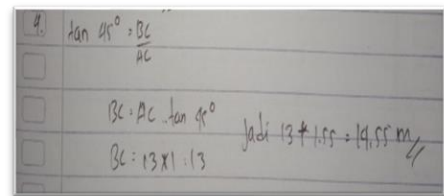 4. tan 45° = BC/AC
BC = AC . tan 45°
BC = 13 x 1 = 13
Jadi 13 + 1.55 = 14.55 m //